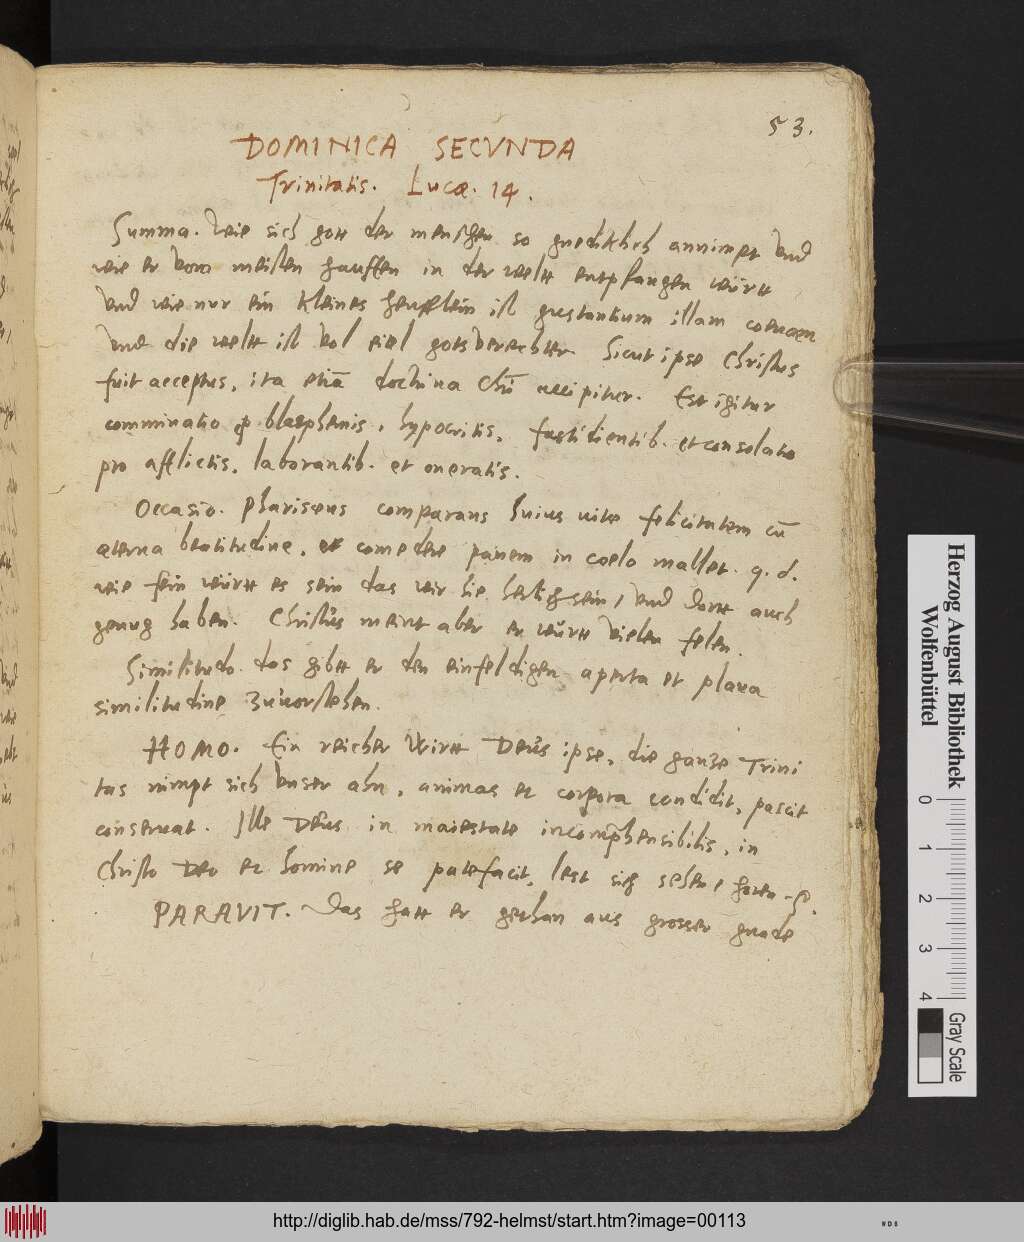 53.
DOMINICA SECVNDA
Trinitatis. Lucæ. 14.
Summa. Wie sich gott der menschen so gnediklich annimpt vnd
wie er vom meisten hauffen in der welt entpfangen württ
vnd wie nur ein kleines heufflein ist gustantium illam coenam
vnd die weltt ist vol eitel gots verechtter Sicut ipse Christus
fuit acceptus, ita etiā doctrina Chri accipitur. Est igitur
comminatio p blasphemis, hypocritis, fastidientib. et consolatio
pro afflictis, laborantib. et oneratis.
Occasio. Phariseus comparans huius uitæ felicitatem cū
æterna beatitudine, et comedere panem in coelo mallet. q. d.
wie fein württ es sein das wir hie selig sein, vnd dortt auch
genug haben. Christus meint aber er württ vielen felen.
Similitudo. das gibtt er den einfeldigen aperta et plana
similitudine zuuorstehen.
HOMO. Ein reicher Wirtt Deus ipse, die ganze Trini
tas nimpt sich vnser ahn, animas et corpora condidit, pascit
conseruat. Ille Deus in maiestate incomprehensibilis, in
Christo Deo et homine se patefacit, lest sich sehen, horen
PARAVIT. Das hatt er gethan aus grosser gnade
Herzog August Bibliothek
Wolfenbüttel
0 1 2 3 4
Gray Scale
http://diglib.hab.de/mss/792-helmst/start.htm?image=00113
WDB